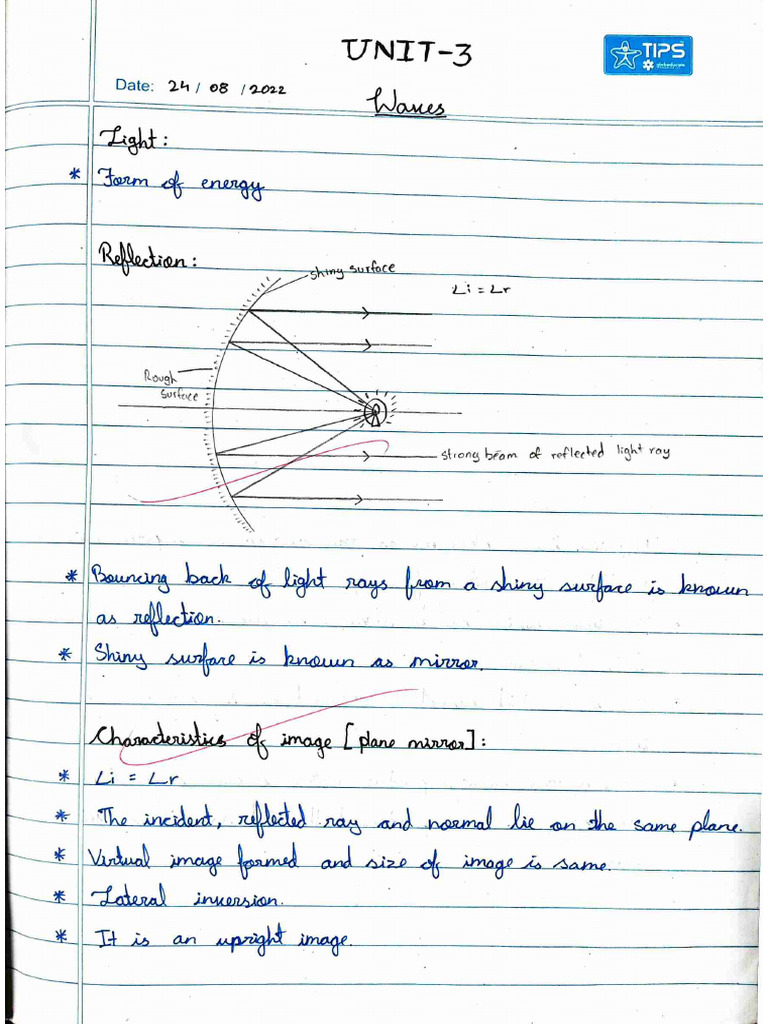 UNIT-3
TIPS
Date: 24 / 08 / 2022
Waves
Light:
* Form of energy
Reflection:
shiny surface
∠i = ∠r
Rough
surface
strong beam of reflected light ray
* Bouncing back of light rays from a shiny surface is known
as reflection.
* Shiny surface is known as mirror.
Characteristics of image [plane mirror]:
* ∠i = ∠r
* The incident, reflected ray and normal lie on the same plane.
* Virtual image formed and size of image is same.
* Lateral inversion.
* It is an upright image.